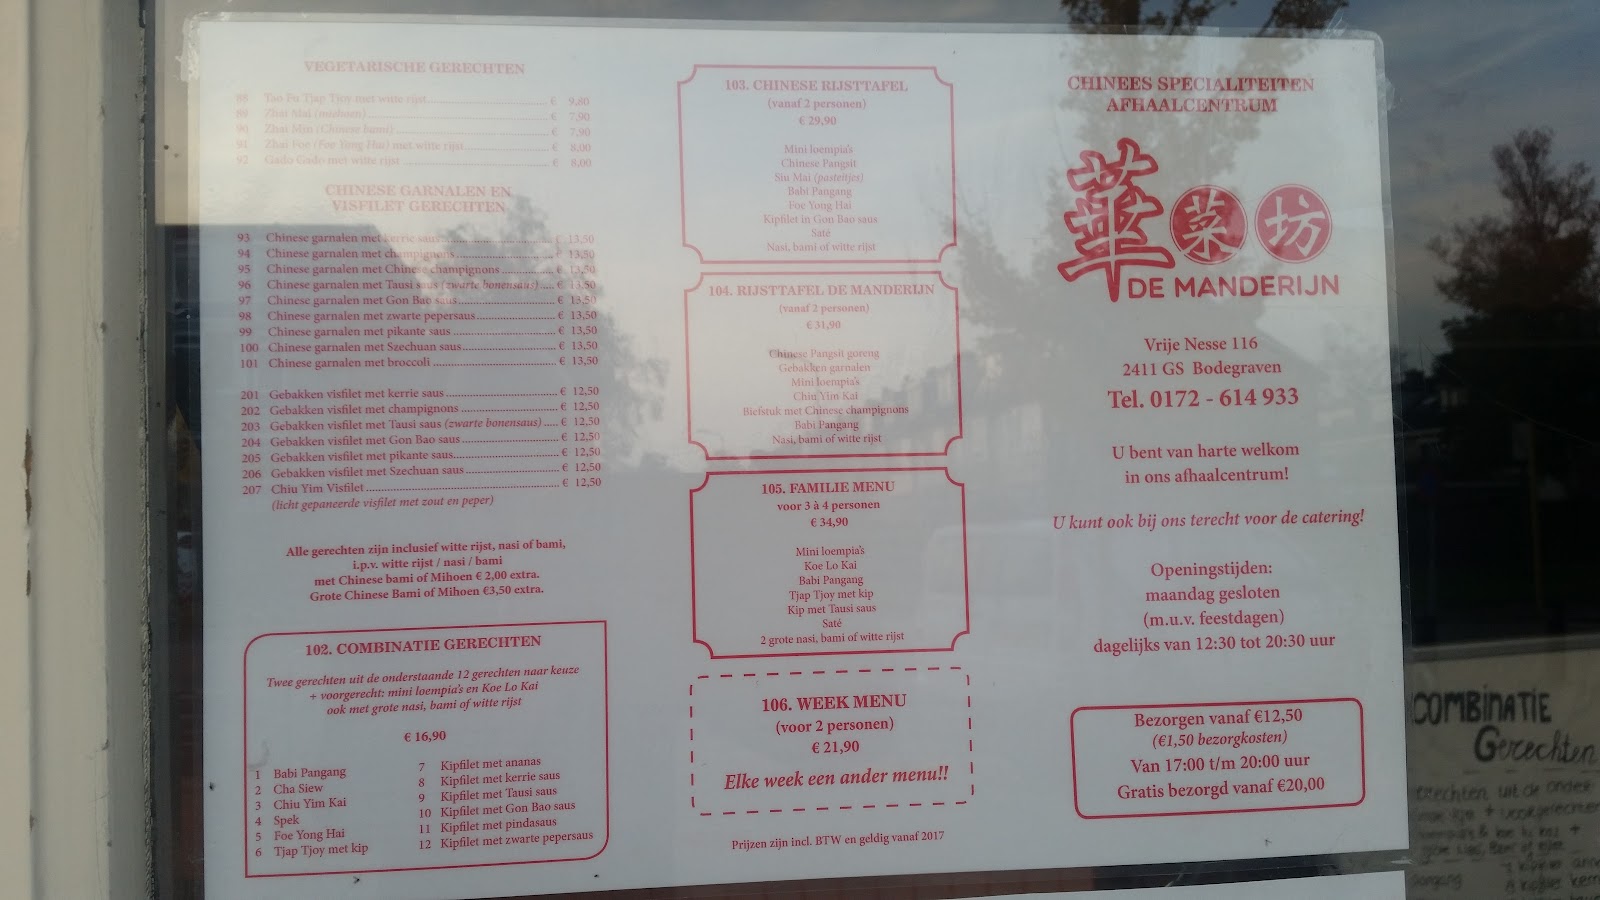 VEGETARISCHE GERECHTEN
88 Tao Fu Tjap Tjoy met witte rijst € 9,80
89 Zhai Mai (mihoen) € 7,90
90 Zhai Min (Chinese bami) € 7,90
91 Zhai Foe (Foe Yong Hai) met witte rijst € 8,00
92 Gado Gado met witte rijst € 8,00
CHINESE GARNALEN EN
VISFILET GERECHTEN
93 Chinese garnalen met kerrie saus € 13,50
94 Chinese garnalen met champignons € 13,50
95 Chinese garnalen met Chinese champignons € 13,50
96 Chinese garnalen met Tausi saus (zwarte bonensaus) € 13,50
97 Chinese garnalen met Gon Bao saus € 13,50
98 Chinese garnalen met zwarte pepersaus € 13,50
99 Chinese garnalen met pikante saus € 13,50
100 Chinese garnalen met Szechuan saus € 13,50
101 Chinese garnalen met broccoli € 13,50
201 Gebakken visfilet met kerrie saus € 12,50
202 Gebakken visfilet met champignons € 12,50
203 Gebakken visfilet met Tausi saus (zwarte bonensaus) € 12,50
204 Gebakken visfilet met Gon Bao saus € 12,50
205 Gebakken visfilet met pikante saus € 12,50
206 Gebakken visfilet met Szechuan saus € 12,50
207 Chiu Yim Visfilet € 12,50
(licht gepaneerde visfilet met zout en peper)
Alle gerechten zijn inclusief witte rijst, nasi of bami,
i.p.v. witte rijst / nasi / bami
met Chinese bami of Mihoen € 2,00 extra.
Grote Chinese Bami of Mihoen €3,50 extra.
102. COMBINATIE GERECHTEN
Twee gerechten uit de onderstaande 12 gerechten naar keuze
+ voorgerecht: mini loempia's en Koe Lo Kai
ook met grote nasi, bami of witte rijst
€ 16,90
1 Babi Pangang
2 Cha Siew
3 Chiu Yim Kai
4 Spek
5 Foe Yong Hai
6 Tjap Tjoy met kip
7 Kipfilet met ananas
8 Kipfilet met kerrie saus
9 Kipfilet met Tausi saus
10 Kipfilet met Gon Bao saus
11 Kipfilet met pindasaus
12 Kipfilet met zwarte pepersaus
103. CHINESE RIJSTTAFEL
(vanaf 2 personen)
€ 29,90
Mini loempia's
Chinese Pangsit
Siu Mai (pasteitjes)
Babi Pangang
Foe Yong Hai
Kipfilet in Gon Bao saus
Saté
Nasi, bami of witte rijst
104. RIJSTTAFEL DE MANDERIJN
(vanaf 2 personen)
€ 31,90
Chinese Pangsit goreng
Gebakken garnalen
Mini loempia's
Chiu Yim Kai
Biefstuk met Chinese champignons
Babi Pangang
Nasi, bami of witte rijst
105. FAMILIE MENU
voor 3 à 4 personen
€ 34,90
Mini loempia's
Koe Lo Kai
Babi Pangang
Tjap Tjoy met kip
Kip met Tausi saus
Saté
2 grote nasi, bami of witte rijst
106. WEEK MENU
(voor 2 personen)
€ 21,90
Elke week een ander menu!!
Prijzen zijn incl. BTW en geldig vanaf 2017
CHINEES SPECIALITEITEN
AFHAALCENTRUM
華菜坊
DE MANDERIJN
Vrije Nesse 116
2411 GS Bodegraven
Tel. 0172 - 614 933
U bent van harte welkom
in ons afhaalcentrum!
U kunt ook bij ons terecht voor de catering!
Openingstijden:
maandag gesloten
(m.u.v. feestdagen)
dagelijks van 12:30 tot 20:30 uur
Bezorgen vanaf €12,50
(€1,50 bezorgkosten)
Van 17:00 t/m 20:00 uur
Gratis bezorgd vanaf €20,00
COMBINATIE
Gerechten